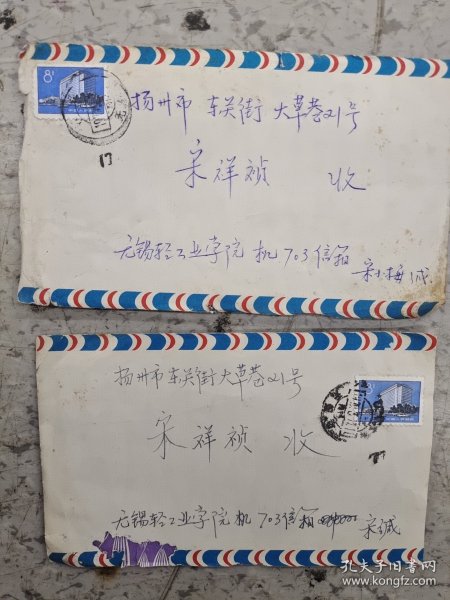 8分
扬州市 东关街 大草巷21号
宋祥祯 收
17
无锡轻工业学院 机 703信箱 宋小梅 缄
扬州市 东关街 大草巷21号
宋祥祯 收
无锡轻工业学院 机 703信箱 宋缄
孔夫子旧书网
www.kongfz.com